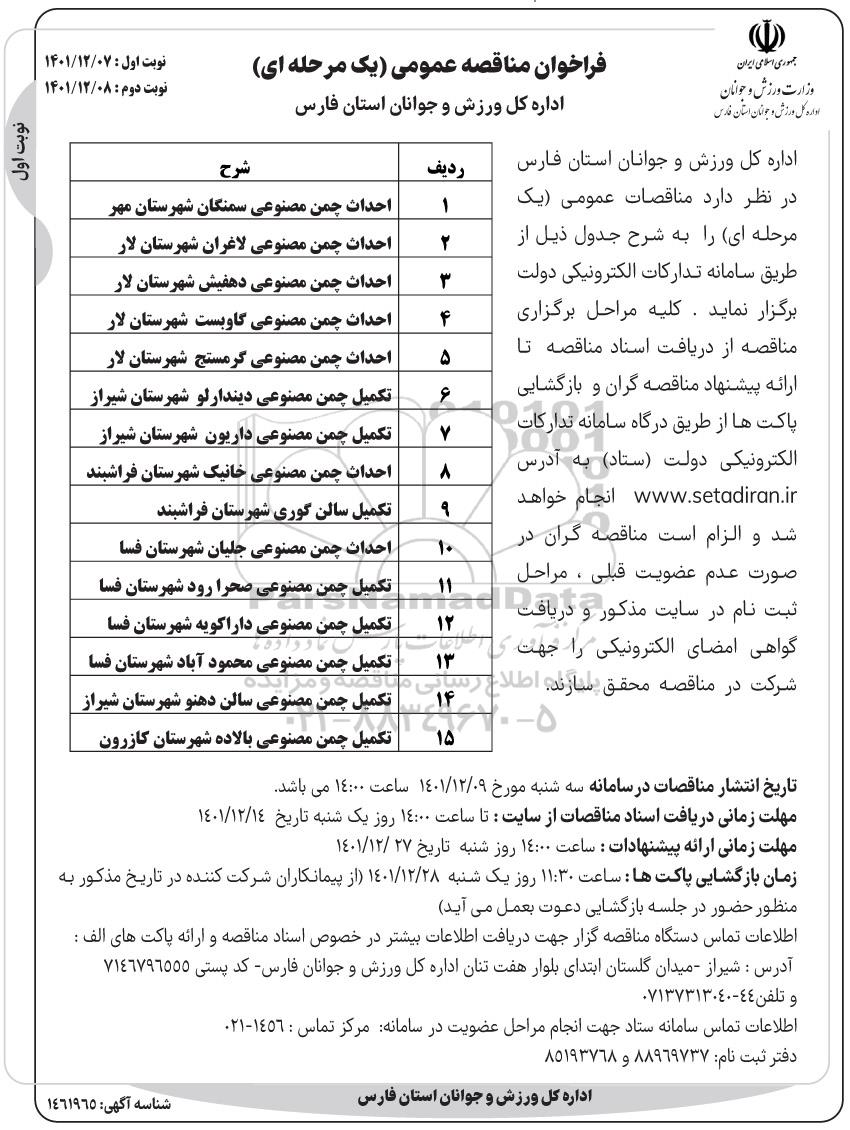 جمهوری اسلامی ایران
وزارت ورزش و جوانان
اداره کل ورزش و جوانان استان فارس
فراخوان مناقصه عمومی (یک مرحله ای)
اداره کل ورزش و جوانان استان فارس
نوبت اول : ۱۴۰۱/۱۲/۰۷
نوبت دوم : ۱۴۰۱/۱۲/۰۸
نوبت اول
اداره کل ورزش و جوانان استان فارس
در نظر دارد مناقصات عمومی (یک
مرحله ای) را به شرح جدول ذیل از
طریق سامانه تدارکات الکترونیکی دولت
برگزار نماید . کلیه مراحل برگزاری
مناقصه از دریافت اسناد مناقصه تا
ارائه پیشنهاد مناقصه گران و بازگشایی
پاکت ها از طریق درگاه سامانه تدارکات
الکترونیکی دولت (ستاد) به آدرس
www.setadiran.ir انجام خواهد
شد و الزام است مناقصه گران در
صورت عدم عضویت قبلی ، مراحل
ثبت نام در سایت مذکور و دریافت
گواهی امضای الکترونیکی را جهت
شرکت در مناقصه محقق سازند.
ردیف شرح
۱ احداث چمن مصنوعی سمنگان شهرستان مهر
۲ احداث چمن مصنوعی لاغران شهرستان لار
۳ احداث چمن مصنوعی دهفیش شهرستان لار
۴ احداث چمن مصنوعی گاوبست شهرستان لار
۵ احداث چمن مصنوعی گرمستج شهرستان لار
۶ تکمیل چمن مصنوعی دیندارلو شهرستان شیراز
۷ تکمیل چمن مصنوعی داریون شهرستان شیراز
۸ احداث چمن مصنوعی خانیک شهرستان فراشبند
۹ تکمیل سالن گوری شهرستان فراشبند
۱۰ احداث چمن مصنوعی جلیان شهرستان فسا
۱۱ تکمیل چمن مصنوعی صحرا رود شهرستان فسا
۱۲ تکمیل چمن مصنوعی داراکویه شهرستان فسا
۱۳ تکمیل چمن مصنوعی محمود آباد شهرستان فسا
۱۴ تکمیل چمن مصنوعی سالن دهنو شهرستان شیراز
۱۵ تکمیل چمن مصنوعی بالاده شهرستان کازرون
ParsNamadData
مرکز فرآوری اطلاعات پارس نماد داده ها
پایگاه اطلاع رسانی مناقصه و مزایده
۰۲۱-۸۸۳۴۹۶۷۰-۵
تاریخ انتشار مناقصات در سامانه سه شنبه مورخ ۱۴۰۱/۱۲/۰۹ ساعت ۱۴:۰۰ می باشد.
مهلت زمانی دریافت اسناد مناقصات از سایت : تا ساعت ۱۴:۰۰ روز یک شنبه تاریخ ۱۴۰۱/۱۲/۱۴
مهلت زمانی ارائه پیشنهادات : ساعت ۱۴:۰۰ روز شنبه تاریخ ۲۷ /۱۴۰۱/۱۲
زمان بازگشایی پاکت ها : ساعت ۱۱:۳۰ روز یک شنبه ۱۴۰۱/۱۲/۲۸ (از پیمانکاران شرکت کننده در تاریخ مذکور به
منظور حضور در جلسه بازگشایی دعوت بعمل می آید)
اطلاعات تماس دستگاه مناقصه گزار جهت دریافت اطلاعات بیشتر در خصوص اسناد مناقصه و ارائه پاکت های الف :
آدرس : شیراز -میدان گلستان ابتدای بلوار هفت تنان اداره کل ورزش و جوانان فارس- کد پستی ۷۱۴۶۷۹۶۵۵۵
و تلفن۴۴-۰۷۱۳۷۳۱۳۰۴۰
اطلاعات تماس سامانه ستاد جهت انجام مراحل عضویت در سامانه: مرکز تماس : ۱۴۵۶-۰۲۱
دفتر ثبت نام: ۸۸۹۶۹۷۳۷ و ۸۵۱۹۳۷۶۸
اداره کل ورزش و جوانان استان فارس
شناسه آگهی: ۱۴۶۱۹۶۵